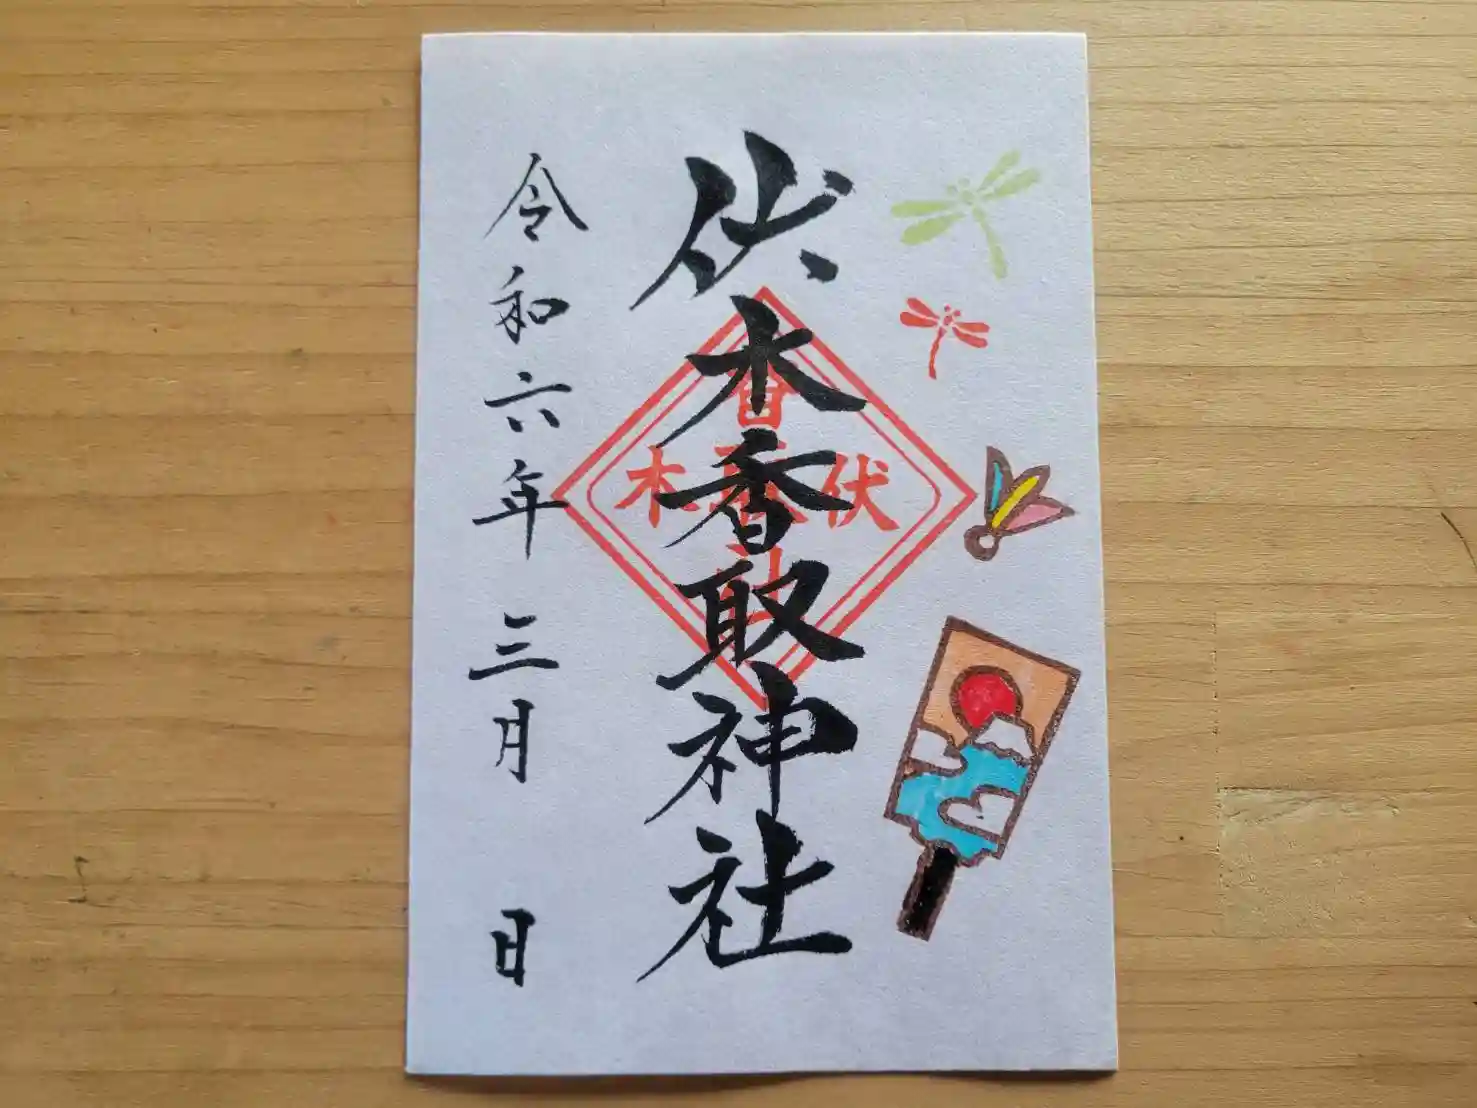 伏木香取神社
伏木
香取
神社
令和六年三月 日